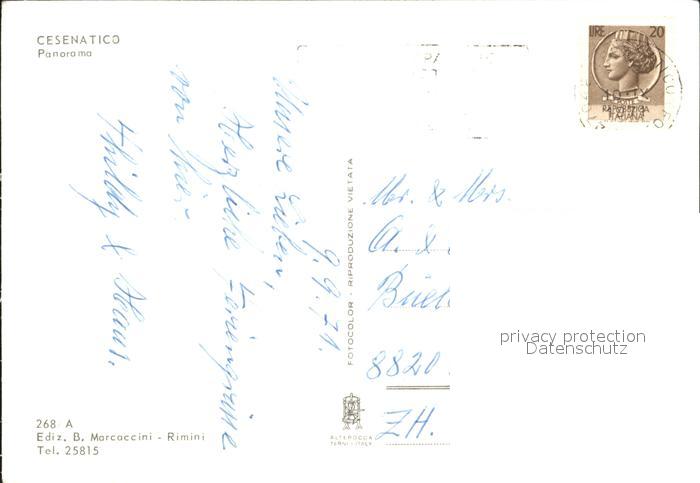 CESENATICO
Panorama
LIRE 20
REPUBBLICA
ITALIANA
9. 9. 71.
Unsere Lieben,
Herzliche Feriengrüsse
von hier.
& Hans.
FOTOCOLOR - RIPRODUZIONE VIETATA
Mr. & Mrs.
A. &
8820
ZH.
privacy protection
Datenschutz
268 A
Ediz. B. Marcaccini - Rimini
Tel. 25815
ALTEROCCA
TERNI - ITALY